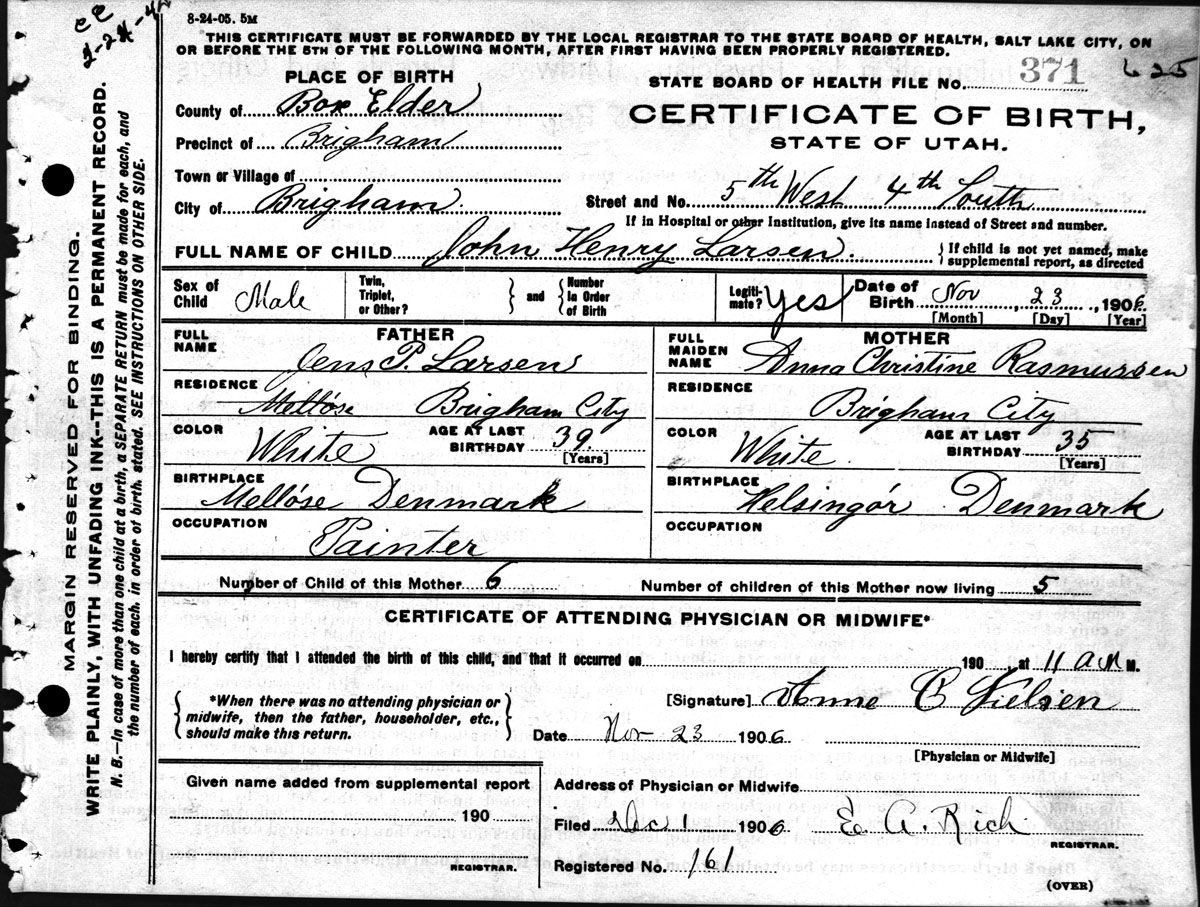 cc
2-24-42
8-24-05. 5M
THIS CERTIFICATE MUST BE FORWARDED BY THE LOCAL REGISTRAR TO THE STATE BOARD OF HEALTH, SALT LAKE CITY, ON
OR BEFORE THE 5TH OF THE FOLLOWING MONTH, AFTER FIRST HAVING BEEN PROPERLY REGISTERED.
MARGIN RESERVED FOR BINDING.
WRITE PLAINLY, WITH UNFADING INK--THIS IS A PERMANENT RECORD.
N. B.—In case of more than one child at a birth, a SEPARATE RETURN must be made for each, and
the number of each, in order of birth, stated. SEE INSTRUCTIONS ON OTHER SIDE.
PLACE OF BIRTH
County of Box Elder
Precinct of Brigham
Town or Village of
City of Brigham
STATE BOARD OF HEALTH FILE NO. 371 625
CERTIFICATE OF BIRTH,
STATE OF UTAH.
Street and No. 5th West 4th South
If in Hospital or other Institution, give its name instead of Street and number.
FULL NAME OF CHILD John Henry Larsen. { If child is not yet named, make
supplemental report, as directed
Sex of Child Male
Twin, Triplet, or Other? } and { Number in Order of Birth
Legiti-mate? Yes
Date of Birth Nov, 23, 1906
[Month] [Day] [Year]
FATHER
FULL NAME Jens P. Larsen
RESIDENCE Mellöse Brigham City
COLOR White AGE AT LAST BIRTHDAY 39. [Years]
BIRTHPLACE Mellöse Denmark
OCCUPATION Painter
MOTHER
FULL MAIDEN NAME Anna Christine Rasmussen
RESIDENCE Brigham City
COLOR White. AGE AT LAST BIRTHDAY 35 [Years]
BIRTHPLACE Helsingör Denmark
OCCUPATION
Number of Child of this Mother 6 Number of children of this Mother now living 5
CERTIFICATE OF ATTENDING PHYSICIAN OR MIDWIFE*
I hereby certify that I attended the birth of this child, and that it occurred on 190 , at 11 a M M.
{ *When there was no attending physician or
midwife, then the father, householder, etc.,
should make this return. }
[Signature] Anne C Nielsen
Date Nov 23 1906
[Physician or Midwife]
Given name added from supplemental report
190
REGISTRAR.
Address of Physician or Midwife
Filed Dec 1 1906 E. A. Rich
REGISTRAR.
Registered No. 161
(OVER)